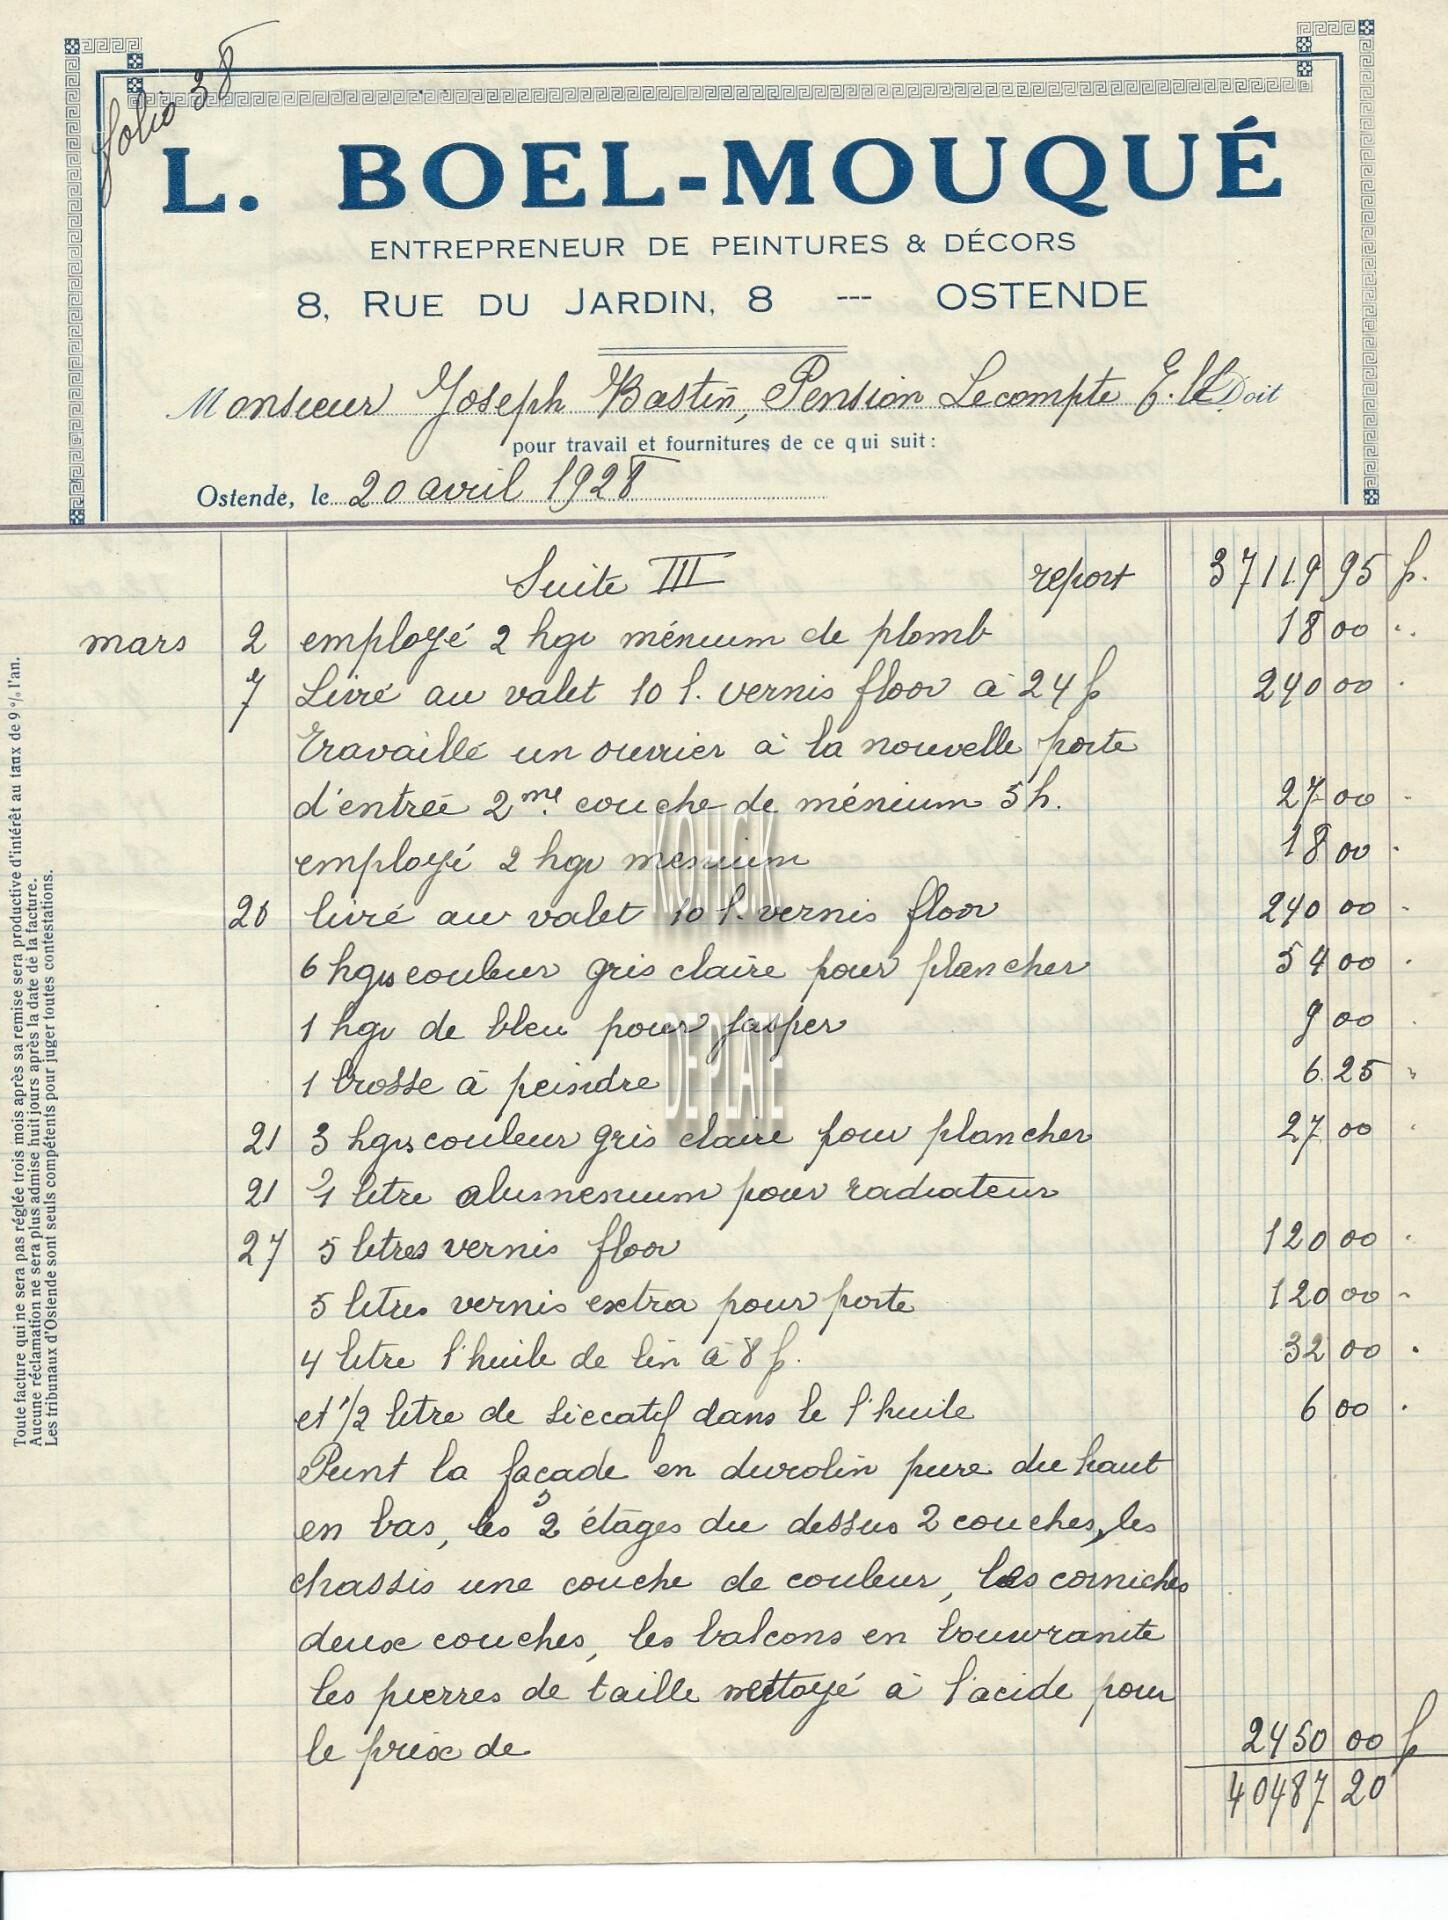 folio 38
L. BOEL-MOUQUÉ
ENTREPRENEUR DE PEINTURES & DÉCORS
8, RUE DU JARDIN, 8 --- OSTENDE
Monsieur Joseph Bastin, Pension Lecompte Doit
pour travail et fournitures de ce qui suit:
Ostende, le 20 avril 1928
Suite III report 37119 95 f.
mars 2 employé 2 kgr ménium de plomb 18 00 "
7 Livré au valet 10 l. vernis floor à 24 f 240 00 "
travaillé un ouvrier à la nouvelle porte
d'entrée 2me couche de ménium 5 h. 27 00 "
employé 2 kgr menium 18 00 "
20 livré au valet 10 l. vernis floor 240 00 "
6 kgrs couleur gris claire pour plancher 54 00 "
1 kgr de bleu pour jasper 9 00 "
1 brosse à peindre 6 25 "
21 3 kgrs couleur gris claire pour plancher 27 00 "
21 1 litre alumenium pour radiateur
27 5 litres vernis floor 120 00 "
5 litres vernis extra pour porte 120 00 "
4 litre l'huile de lin à 8 f. 32 00 "
et 1/2 litre de siccatif dans le l'huile 6 00 "
Peint la façade en durolin pure du haut
en bas, les 2 étages du dessus 2 couches, les
chassis une couche de couleur, les corniches
deux couches, les balcons en bouvranite
les pierres de taille nettoyé à l'acide pour
le prix de 2450 00 f
40487 20
Toute facture qui ne sera pas réglée trois mois après sa remise sera productive d'intérêt au taux de 9 % l'an.
Aucune réclamation ne sera plus admise huit jours après la date de la facture.
Les tribunaux d'Ostende sont seuls compétents pour juger toutes contestations.
KOHGK
DE PLATE